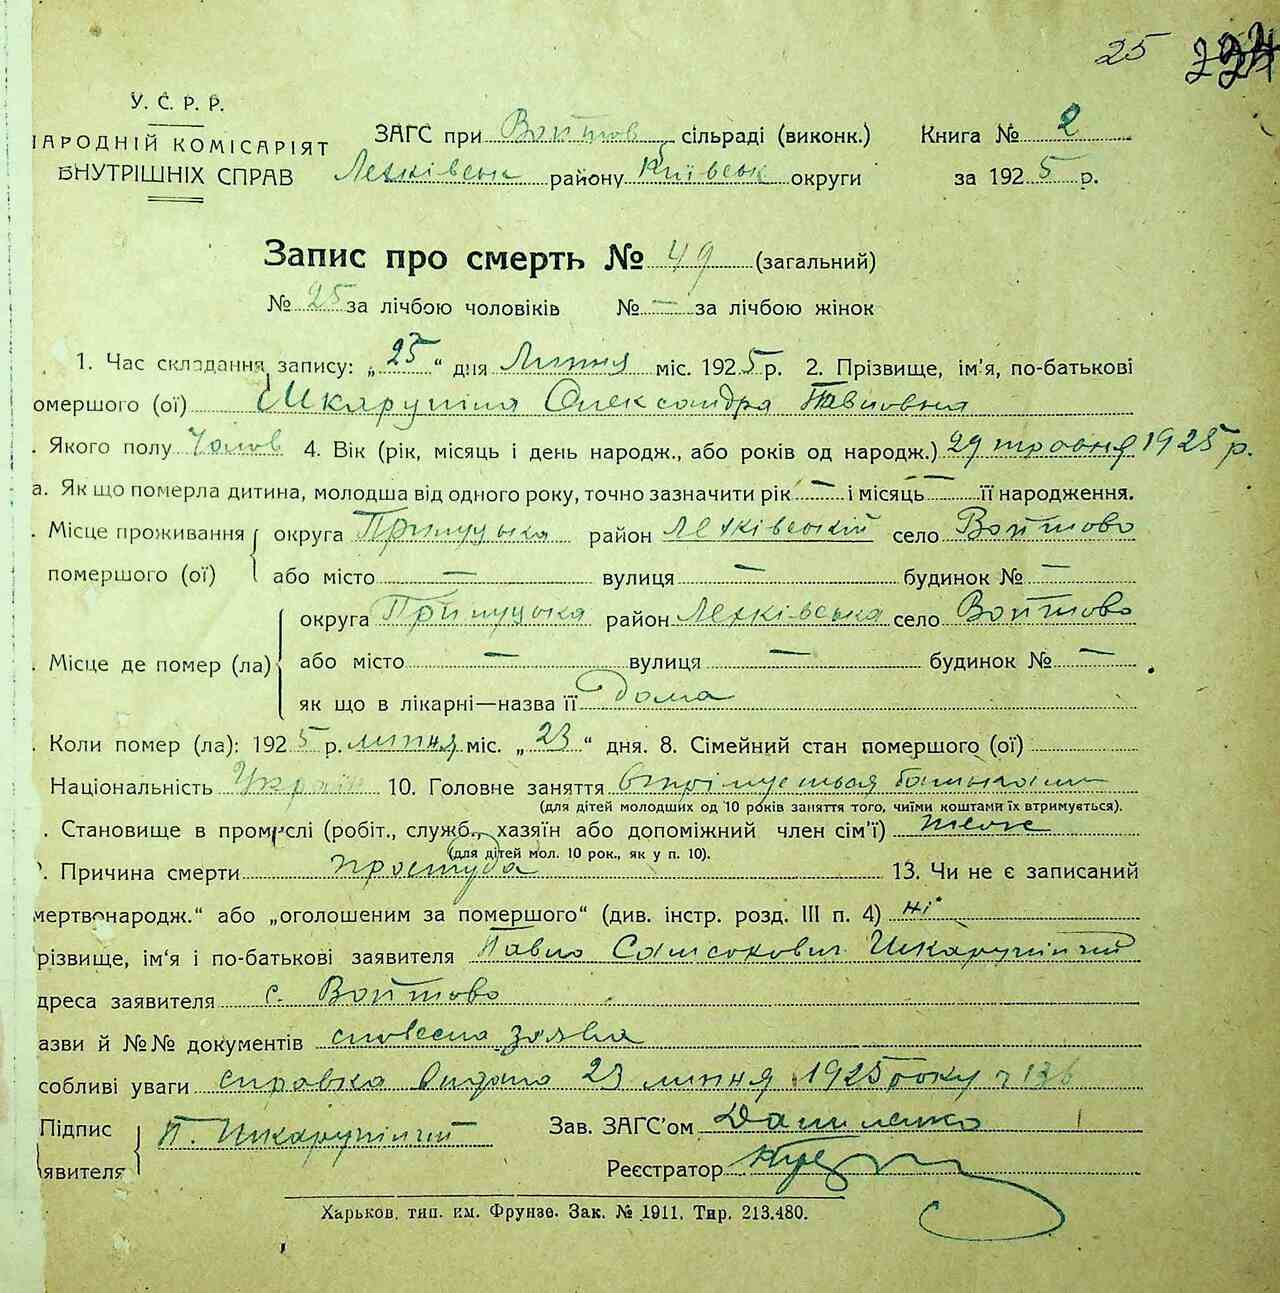 25
У. С. Р. Р.
НАРОДНІЙ КОМІСАРІЯТ
ВНУТРІШНІХ СПРАВ
ЗАГС при Войтов сільраді (виконк.) Книга № 2
району округи за 1925 р.
Запис про смерть № 49 (загальний)
№ 25 за лічбою чоловіків № — за лічбою жінок
1. Час складання запису: „23“ дня Липня міс. 1925 р. 2. Прізвище, ім'я, по-батькові
омершого (ої) Олександра Павловна
. Якого полу Чолов 4. Вік (рік, місяць і день народж., або років од народж.) 29 травня 1925 р.
а. Як що померла дитина, молодша від одного року, точно зазначити рік — і місяць — її народження.
. Місце проживання округа Прилуцька район село Войтово
помершого (ої) або місто — вулиця — будинок № —
округа Прилуцька район село Войтово
. Місце де помер (ла) або місто — вулиця — будинок № —
як що в лікарні—назва її Дома
. Коли помер (ла): 1925 р. липня міс. „23“ дня. 8. Сімейний стан помершого (ої)
Національність Україн 10. Головне заняття
(для дітей молодших од 10 років заняття того, чиїми коштами їх втримується).
. Становище в промислі (робіт., служб., хазяїн або допоміжний член сім'ї) теж
(для дітей мол. 10 рок., як у п. 10).
. Причина смерти простуда 13. Чи не є записаний
мертвонародж.“ або „оголошеним за помершого“ (див. інстр. розд. III п. 4) ні
різвище, ім'я і по-батькові заявителя Павло Шкарупілий
дреса заявителя с. Войтово
азви й №№ документів словесна заява
собливі уваги справка видана 23 липня 1925 року
Підпис П. Шкарупілий Зав. ЗАГС'ом Даниленко
явителя Реєстратор
Харьков, тип. им. Фрунзе. Зак. № 1911. Тир. 213.480.